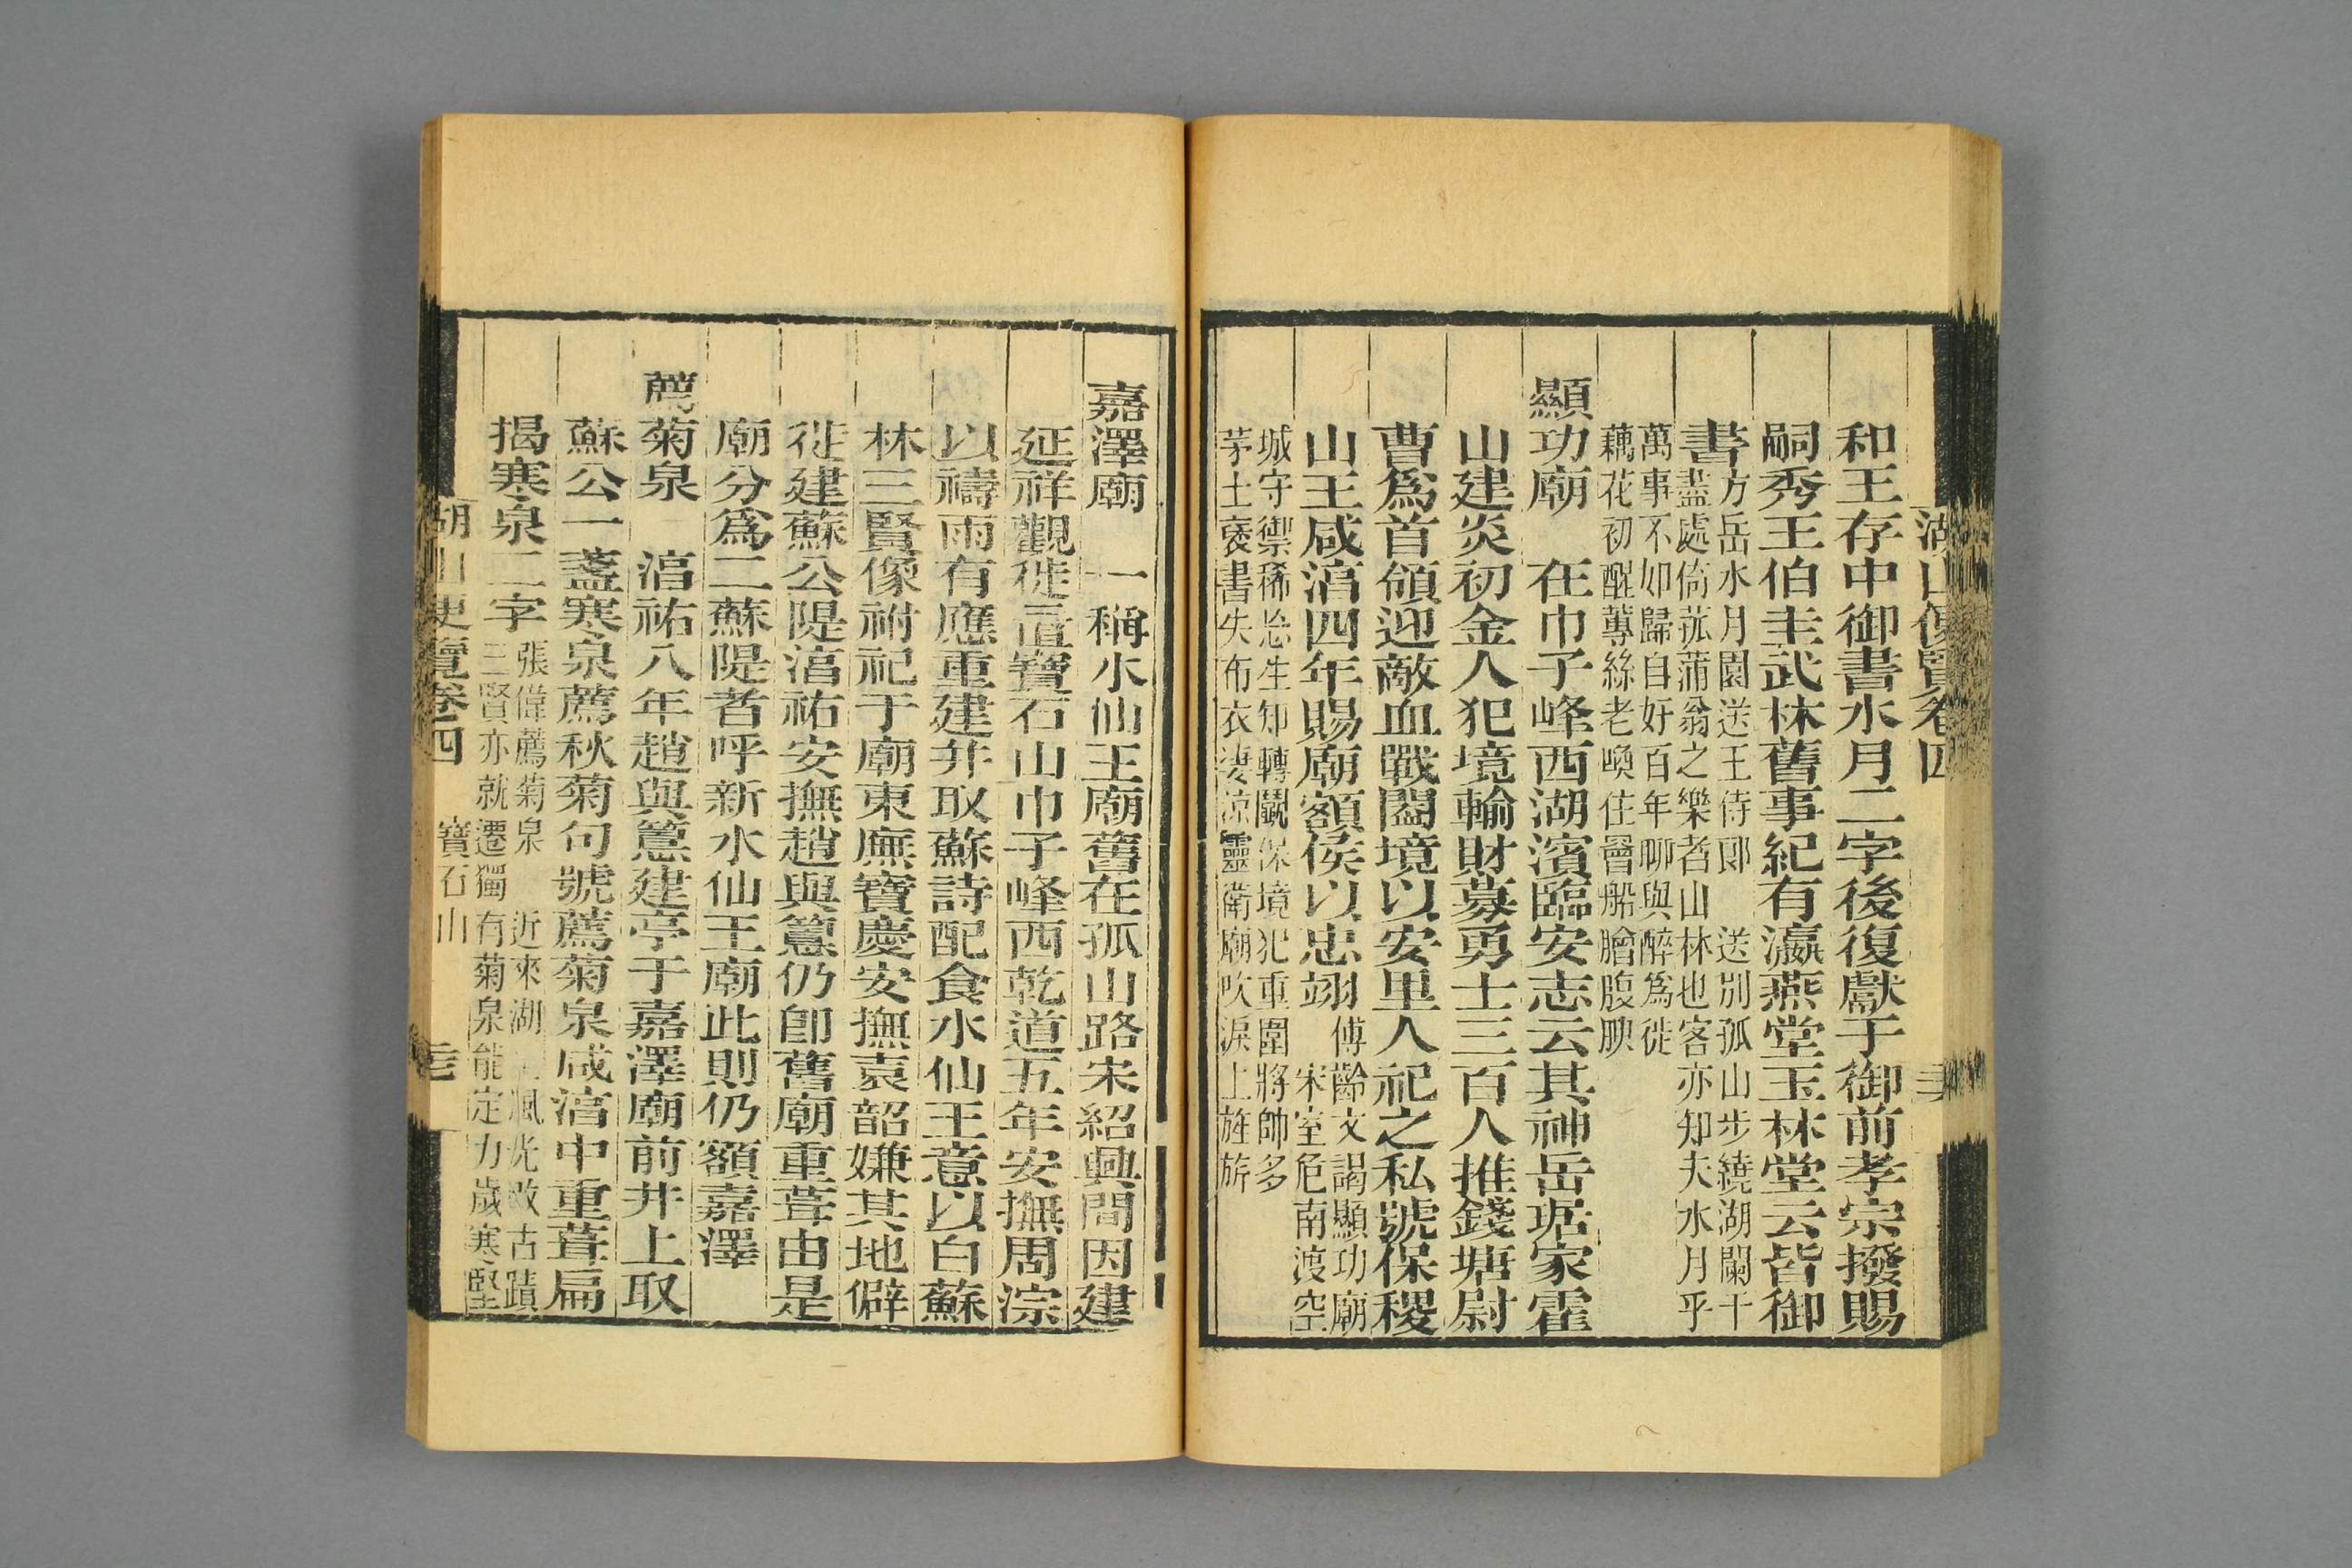 湖山便覽卷四
和王存中御書水月二字後復獻于御前孝宗撥賜
嗣秀王伯圭武林舊事紀有瀛燕堂玉林堂云皆御
書
方岳水月園送王侍郎 送別孤山步繞湖闌干
盡處倚菰蒲翁之樂者山林也客亦知夫水月乎
萬事不如歸自好百年聊與醉爲徒
藕花初醒蓴絲老喚住罾船膾腹腴
顯功廟 在巾子峰西湖濱臨安志云其神岳琚家霍
山建炎初金人犯境輸財募勇士三百人推錢塘尉
曹爲首領迎敵血戰闔境以安里人祀之私號保稷
山王咸湻四年賜廟額侯以忠翊
傅齡文謁顯功廟
宋室危南渡空
城守禦稀忿生知轉鬬保境犯重圍將帥多
茅土褒書失布衣淒涼靈衛廟吹淚上旌旂
嘉澤廟 一稱水仙王廟舊在孤山路宋紹興間因建
延祥觀徙置寶石山巾子峰西乾道五年安撫周淙
以禱雨有應重建幷取蘇詩配食水仙王意以白蘇
林三賢像祔祀于廟東廡寶慶安撫袁韶嫌其地僻
徙建蘇公隄湻祐安撫趙與𥲅仍卽舊廟重葺由是
廟分爲二蘇隄者呼新水仙王廟此則仍額嘉澤
薦菊泉 湻祐八年趙與𥲅建亭于嘉澤廟前井上取
蘇公一盞寒泉薦秋菊句號薦菊泉咸湻中重葺扁
揭寒泉二字
張偉薦菊泉 近來湖上風光改古蹟
三賢亦就遷獨有菊泉能定力歲寒堅
湖山便覽卷四 寶石山